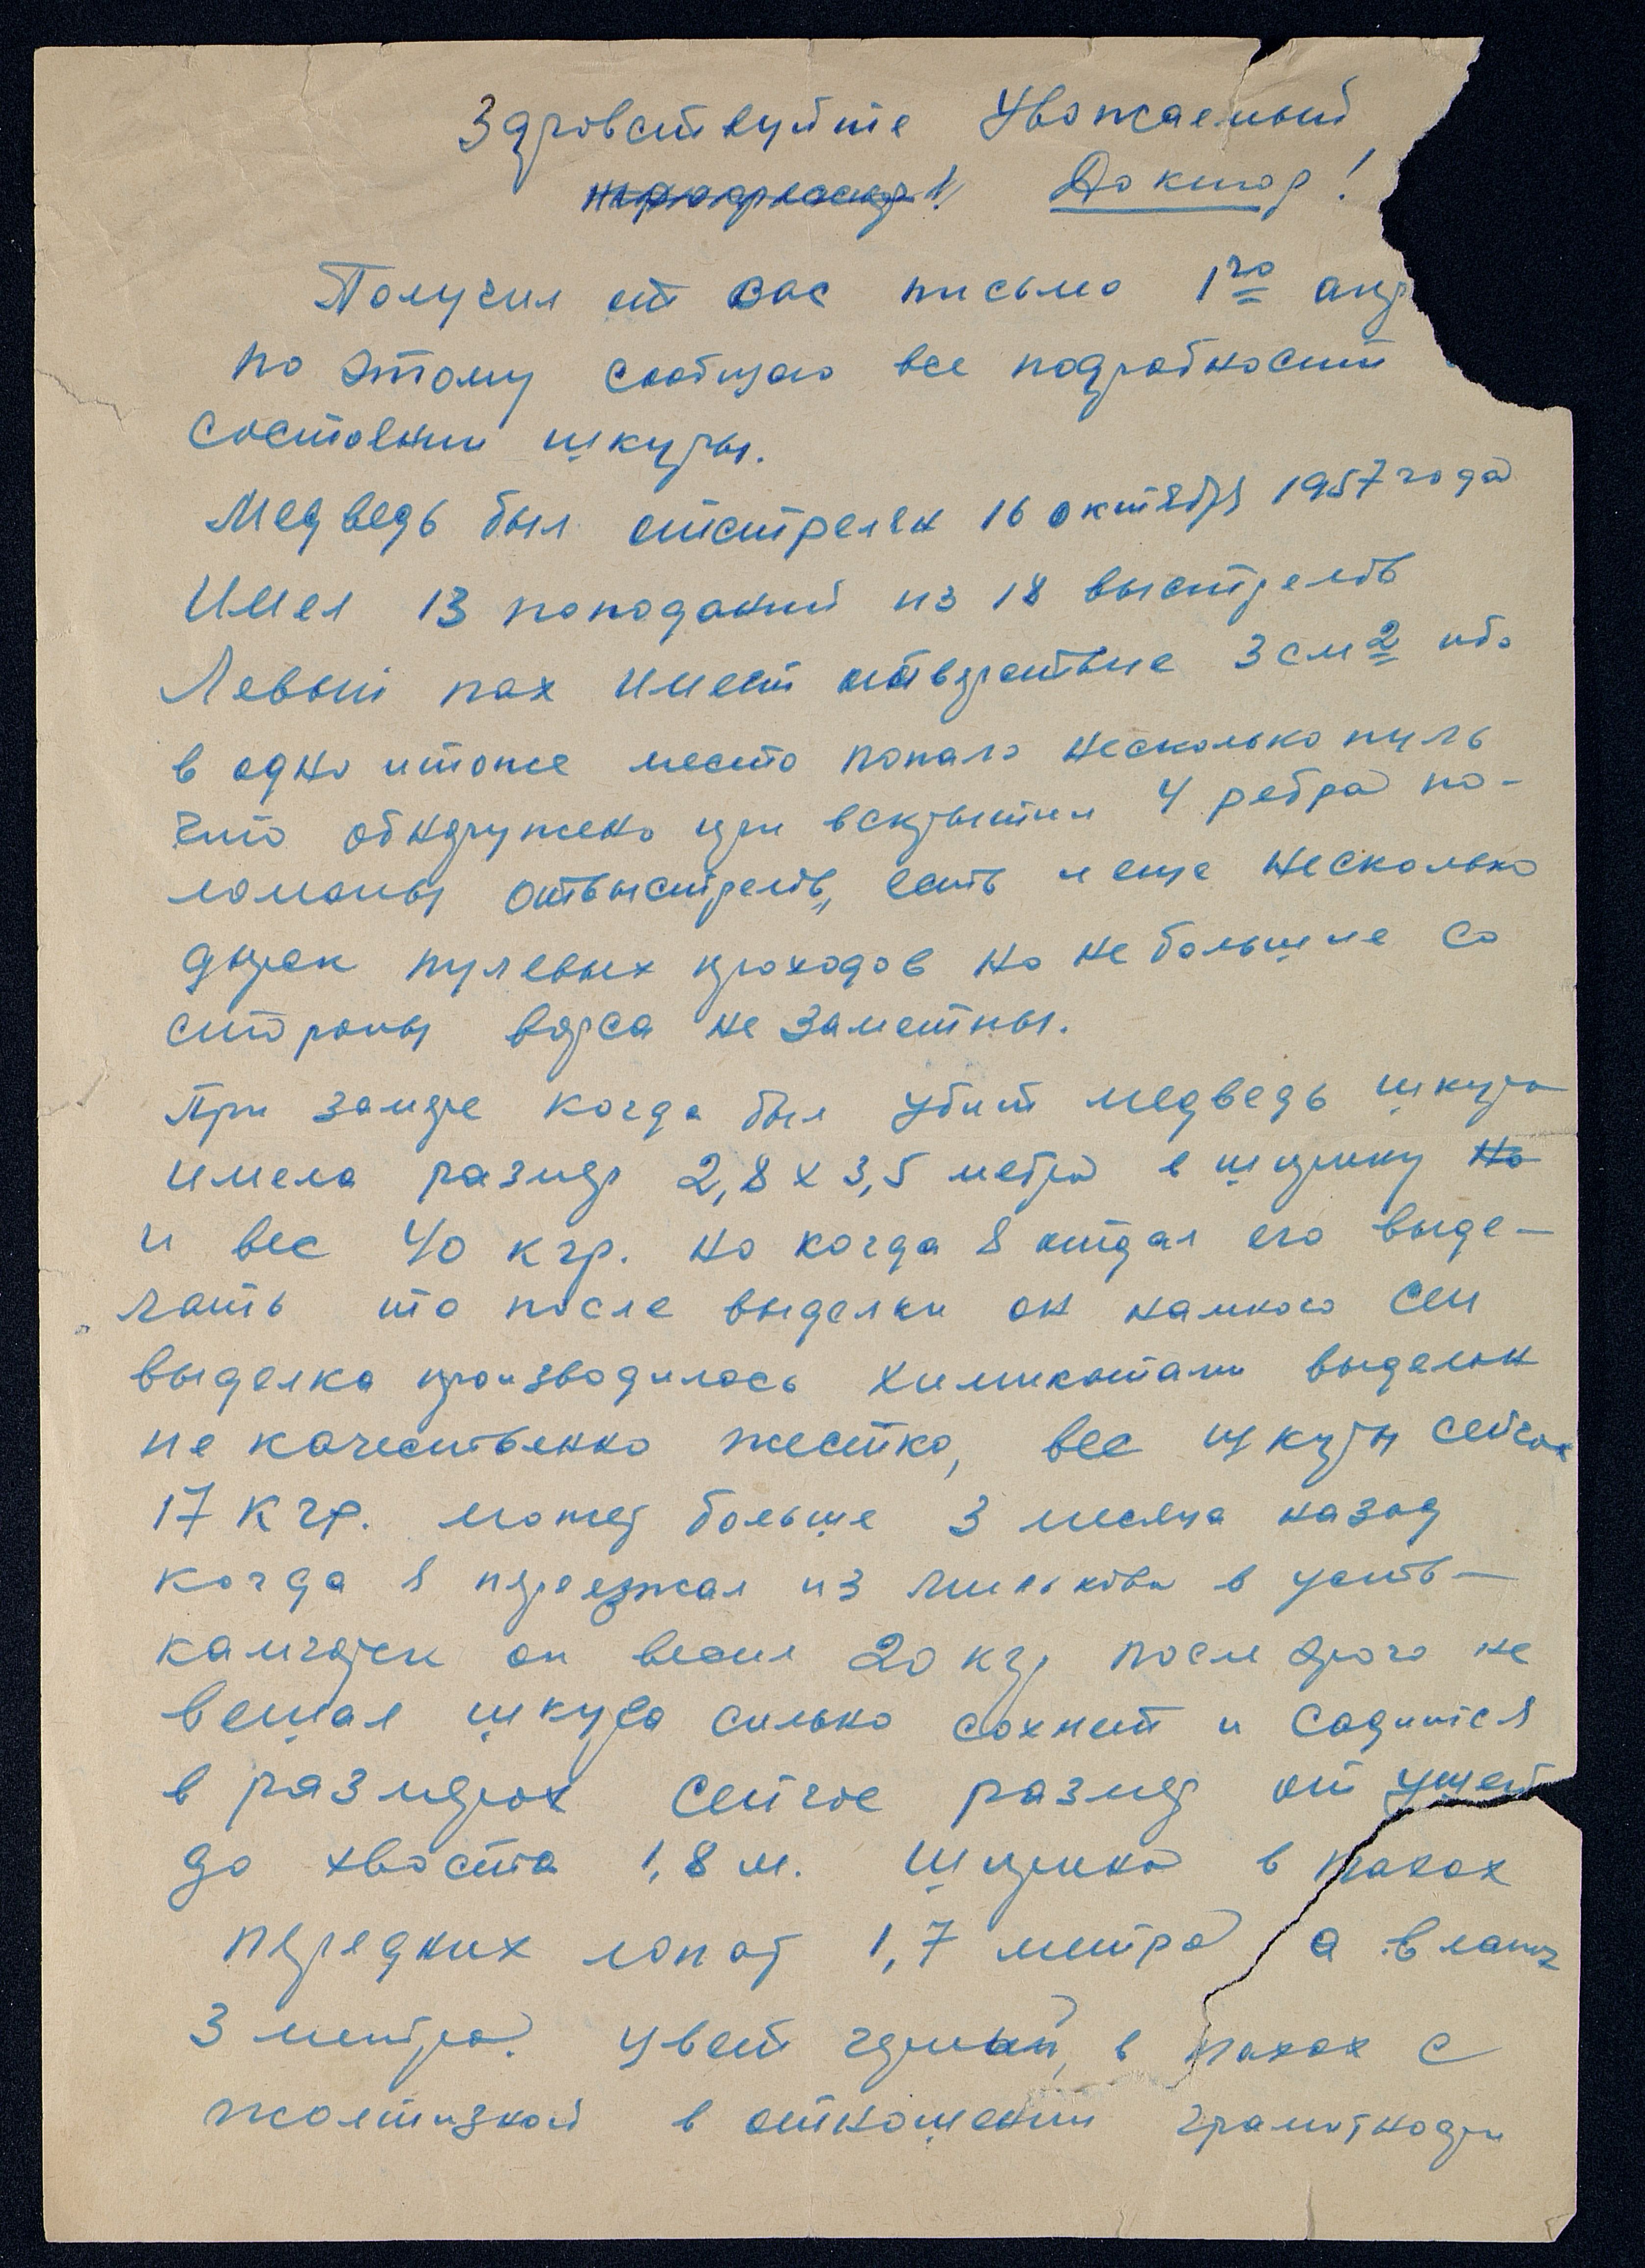 Здровствуйте Уважаемый
Доктор!
Получил от вас письмо 1го апр
по этому сообщаю все подробности
состояния шкуры.
Медведь был отстрелен 16 октября 1957 года
Имел 13 поподаний из 18 выстрелов
Левый пах имеет отверстие 3 см2 ибо
в одно итоже место попало несколько пуль
что обнаружено при вскрытии 4 ребра по-
ломаны от выстрелов, есть и еще несколько
дырок пулевых проходов но не большие со
стороны ворса не заметны.
При замере когда был убит медведь шкура
имела размер 2,8 х 3,5 метра в ширину но
и вес 40 кгр. но когда я отдал его выде-
лать то после выделки он намного сел
выделка производилась химикатами выделан
не качественно жестко, вес шкуры сейчас
17 кгр. может больше 3 месяца назад
когда я переезжал из Мильково в усть-
камчатск он весил 20 кгр после этого не
вешал шкура сильно сохнет и садится
в размерах сейчас размер от ушей
до хвоста 1,8 м. ширина в пахах
передних лопат 1,7 метра а в лапах
3 метра. Цвет черный, в пахах с
жолтизной в отношении